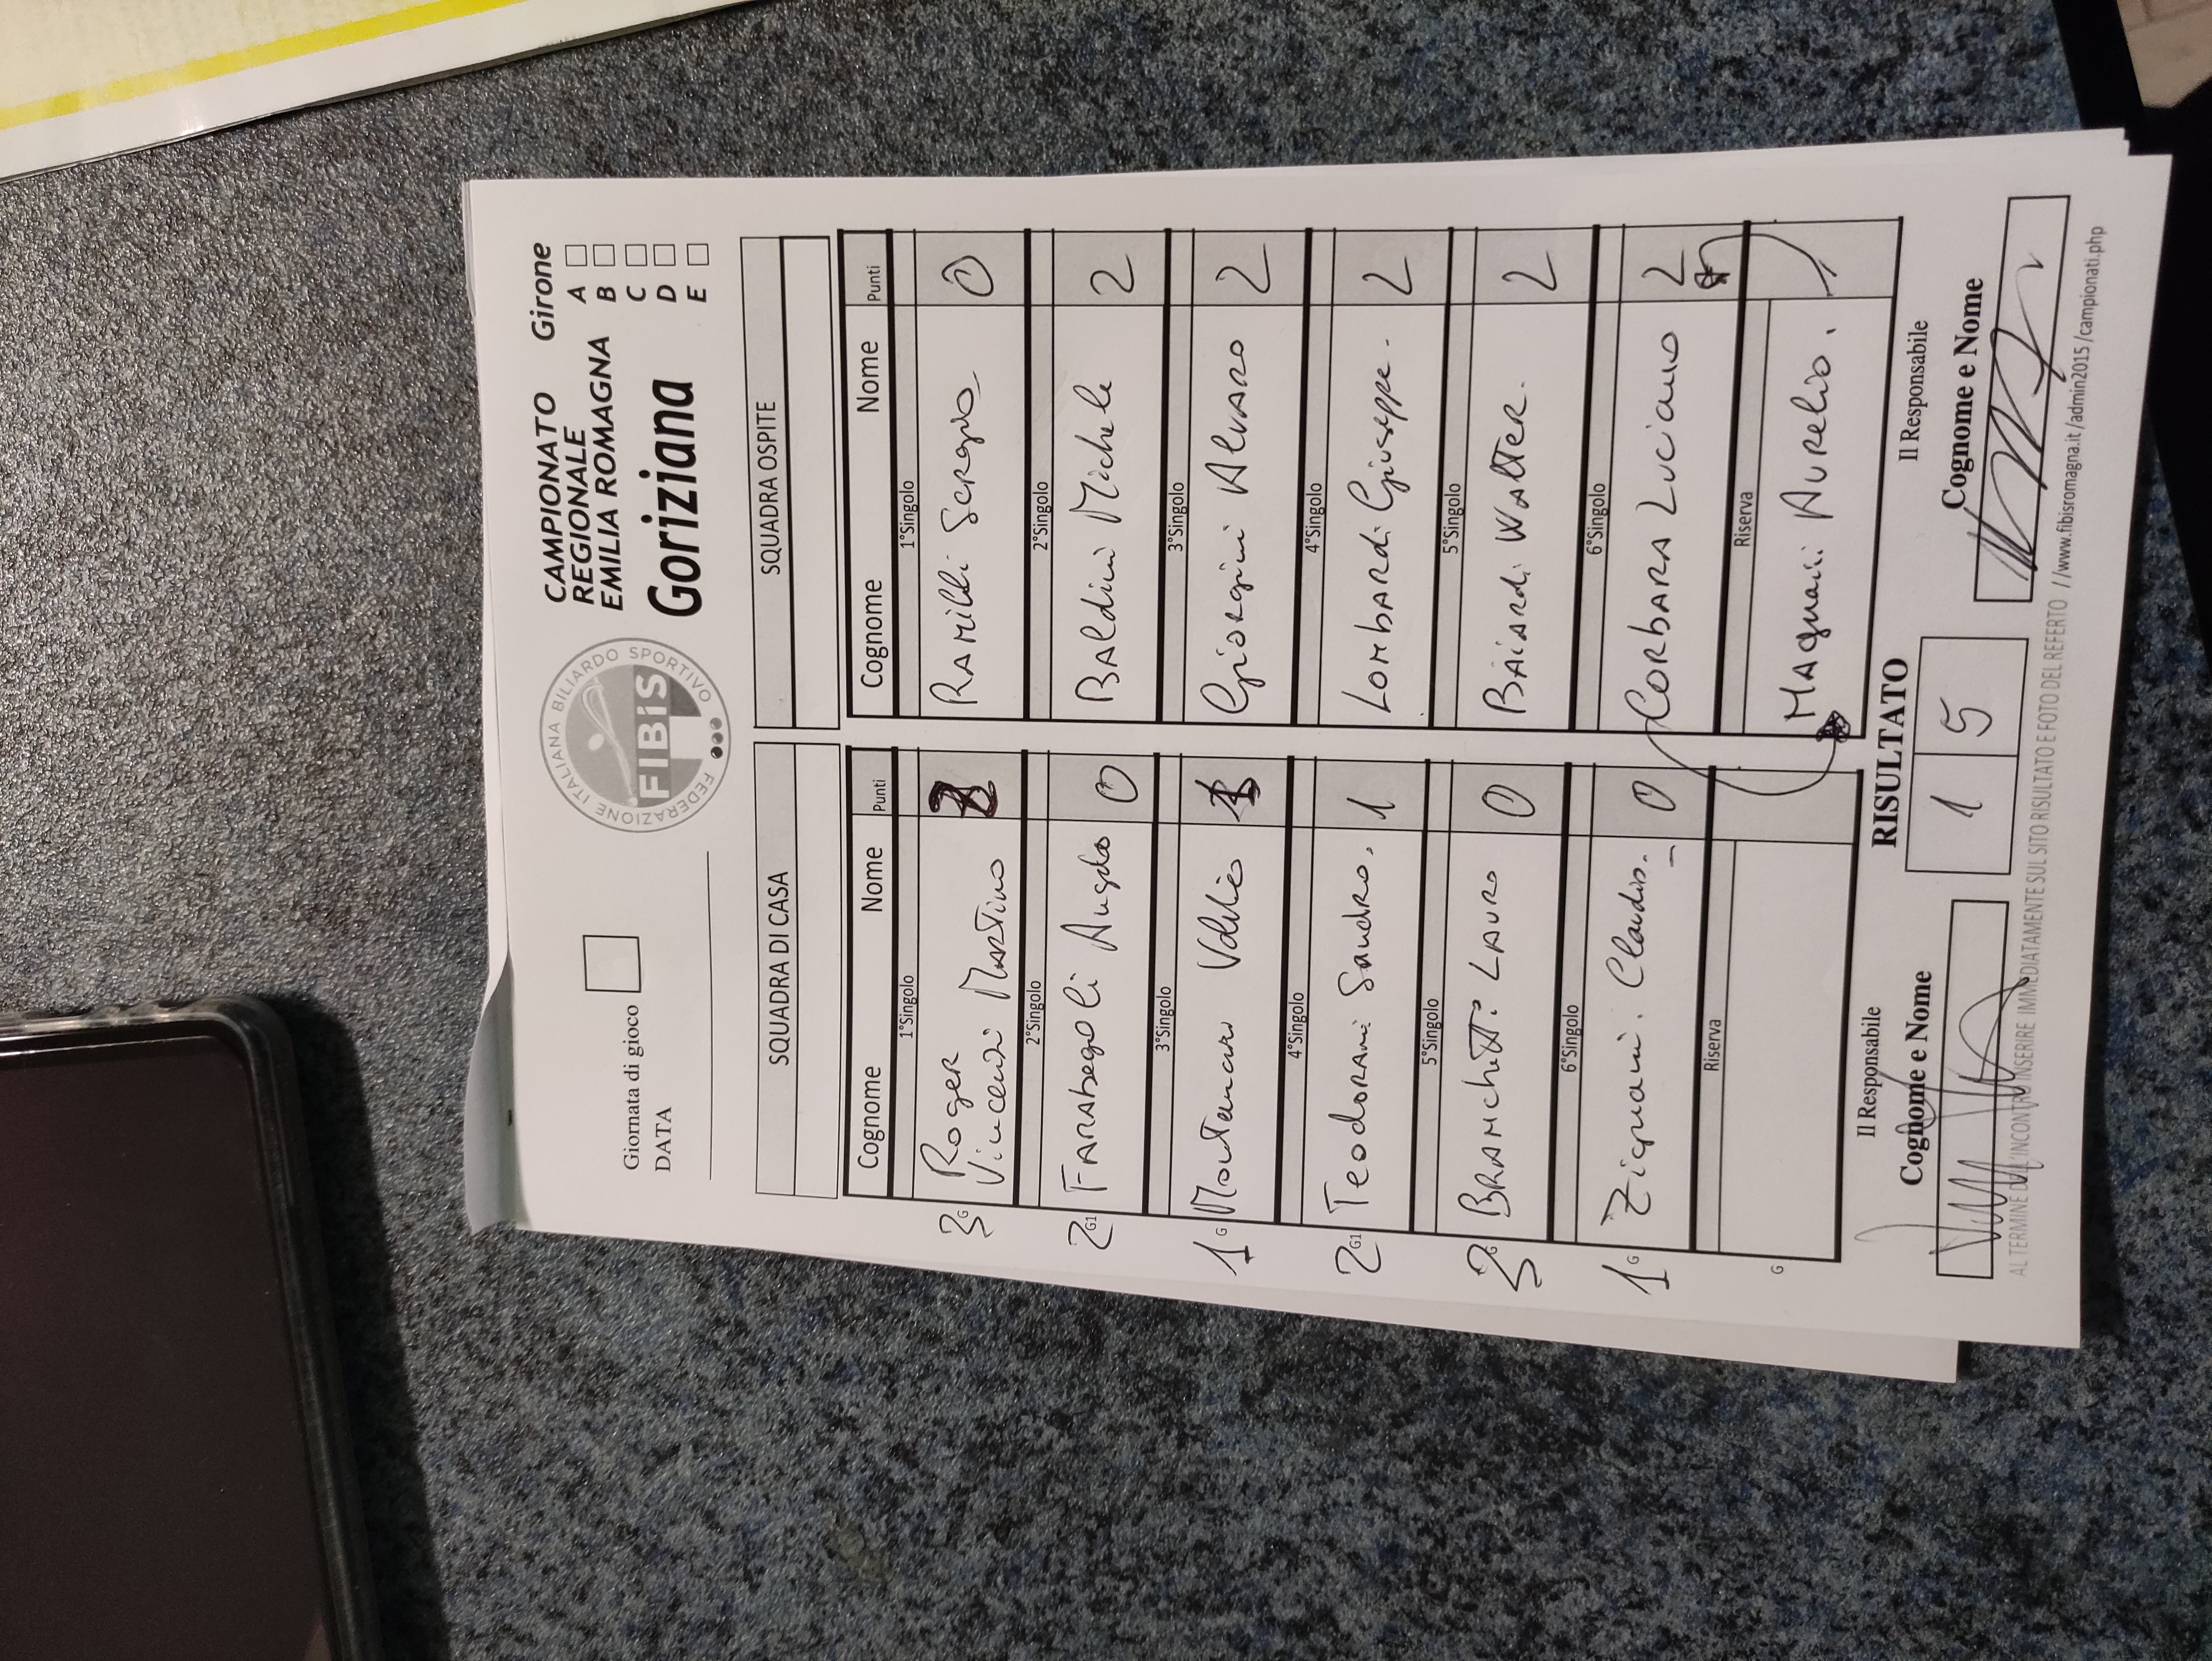 FEDERAZIONE ITALIANA BILIARDO SPORTIVO
FIBiS
CAMPIONATO
REGIONALE
EMILIA ROMAGNA
Goriziana
Girone
A
B
C
D
E
Giornata di gioco
DATA
SQUADRA DI CASA
Cognome Nome Punti
1°Singolo
3 G Roger
Vincenzi Martino
2°Singolo
2 G1 Farabegoli Angelo 0
3°Singolo
1 G Montanari Valerio
4°Singolo
2 G1 Teodorani Sandro. 1
5°Singolo
3 G Bramichetti Lauro 0
6°Singolo
1 G Zignani Claudio. 0
Riserva
G
SQUADRA OSPITE
Cognome Nome Punti
1°Singolo
Ramilli Sergio 0
2°Singolo
Baldini Michele 2
3°Singolo
Giorgini Alvaro 2
4°Singolo
Lombardi Giuseppe. 2
5°Singolo
Baiardi Walter. 2
6°Singolo
Corbara Luciano 2
Riserva
Magnani Aurelio.
Il Responsabile
Cognome e Nome
RISULTATO
1 5
Il Responsabile
Cognome e Nome
AL TERMINE DELL'INCONTRO INSERIRE IMMEDIATAMENTE SUL SITO RISULTATO E FOTO DEL REFERTO //www.fibisromagna.it/admin2015/campionati.php